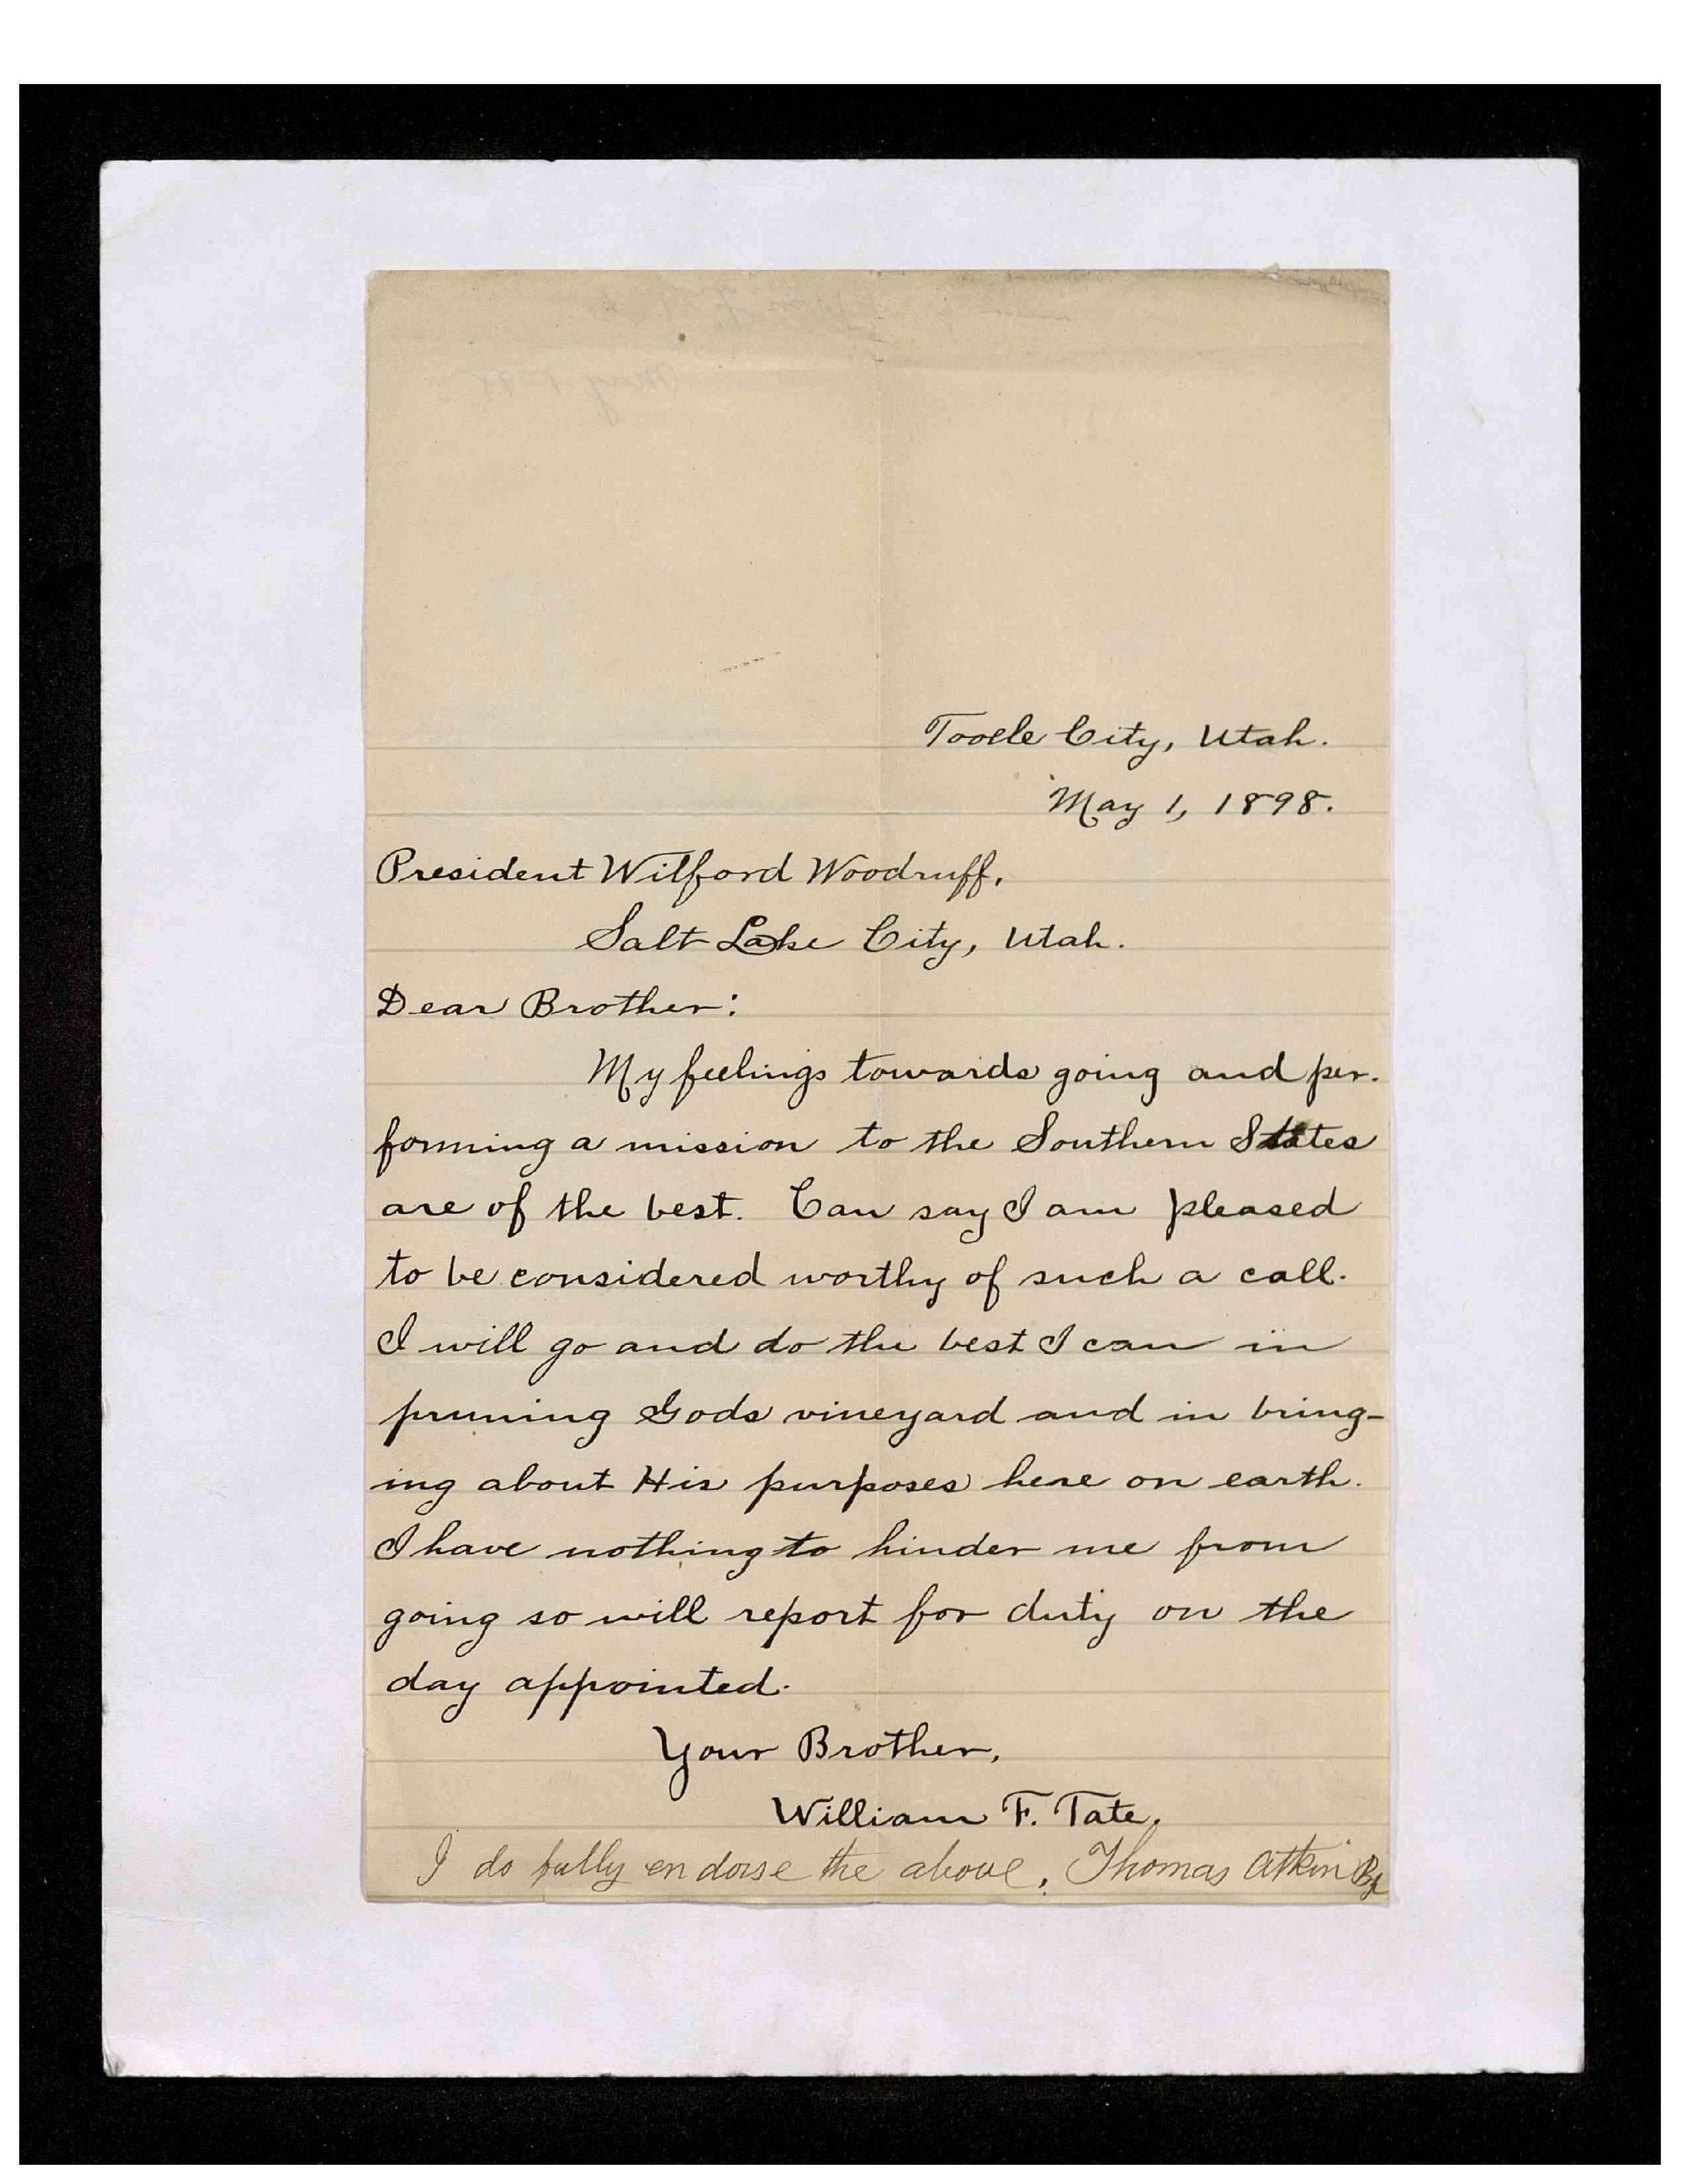 Tooele City, Utah.
May 1, 1898.
President Wilford Woodruff,
Salt Lake City, Utah.
Dear Brother:
My feelings towards going and per-
forming a mission to the Southern States
are of the best. Can say I am pleased
to be considered worthy of such a call.
I will go and do the best I can in
pruning Gods vineyard and in bring-
ing about His purposes here on earth.
I have nothing to hinder me from
going so will report for duty on the
day appointed.
Your Brother,
William F. Tate.
I do fully endorse the above, Thomas Atkin Bp